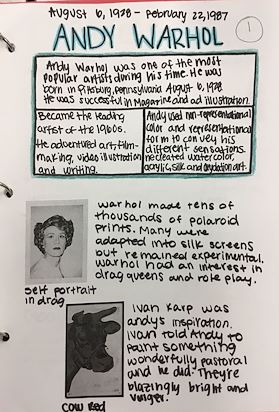 August 6, 1928 - February 22, 1987
1
ANDY WARHOL
Andy Warhol was one of the most
popular artists during his time. He was
born in Pittsburg, Pennsylvania August 6, 1928.
He was successful in Magazine and ad illustration.
Became the leading
artist of the 1960s.
He adventured art, film-
making, video illustration
and writing.
Andy used non-representational
color and representational
form to convey his
different sensations.
he created watercolor,
acrylic, silk and oxydation art.
warhol made tens of
thousands of polaroid
prints. Many were
adapted into silk screens
but remained experimental.
warhol had an interest in
drag queens and role play.
self portrait
in drag
Ivan Karp was
andy's inspiration.
Ivan told Andy to
paint something
wonderfully pastoral
and he did. They're
blazingly bright and
vulger.
Cow Red